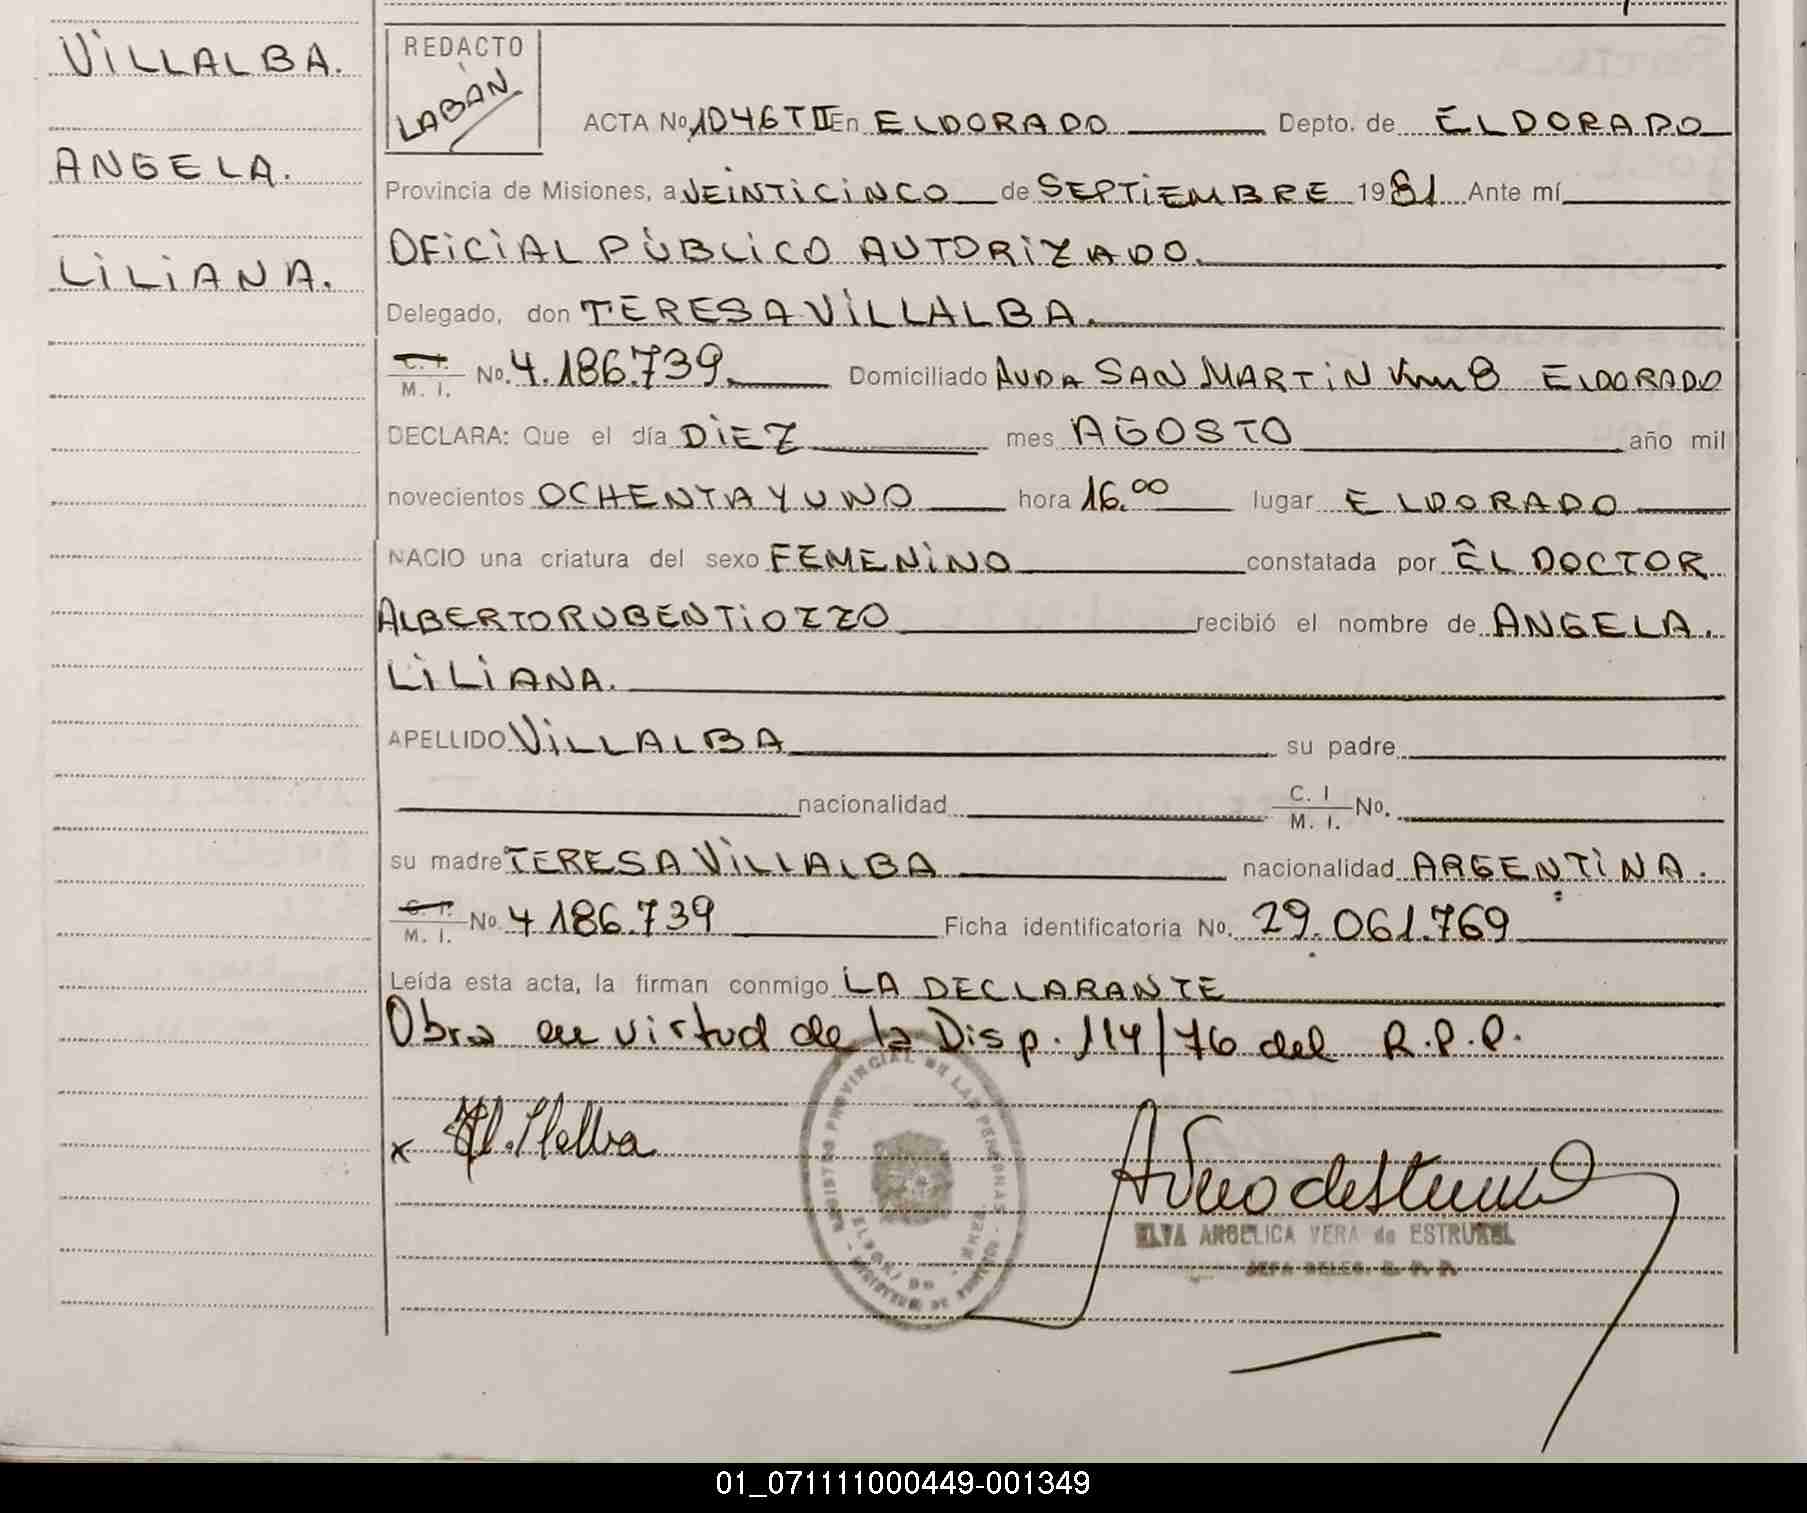 VILLALBA.
ANGELA.
LILIANA.
REDACTO
LABÁN
ACTA Nº 1046 T II En ELDORADO Depto. de ELDORADO
Provincia de Misiones, a VEINTICINCO de SEPTIEMBRE 1981 Ante mí
OFICIAL PÚBLICO AUTORIZADO.
Delegado, don TERESA VILLALBA.
C. I. M. I. No. 4.186.739. Domiciliado AVDA SAN MARTIN Km 8 ELDORADO
DECLARA: Que el día DIEZ mes AGOSTO año mil
novecientos OCHENTA Y UNO hora 16.00 lugar ELDORADO
NACIO una criatura del sexo FEMENINO constatada por EL DOCTOR
ALBERTO RUBEN TIOZZO recibió el nombre de ANGELA.
LILIANA.
APELLIDO VILLALBA su padre
nacionalidad C. I M. I. No.
su madre TERESA VILLALBA nacionalidad ARGENTINA.
C. I. M. I. No. 4 186.739 Ficha identificatoria No. 29.061.769
Leída esta acta, la firman conmigo LA DECLARANTE
Obra en virtud de la Disp. 114/76 del R.P.P.
x
REGISTRO PROVINCIAL DE LAS PERSONAS
ELDORADO
ELVA ANGELICA VERA de ESTRUBEL
JEFA DELEG. R. P. P.
01_071111000449-001349